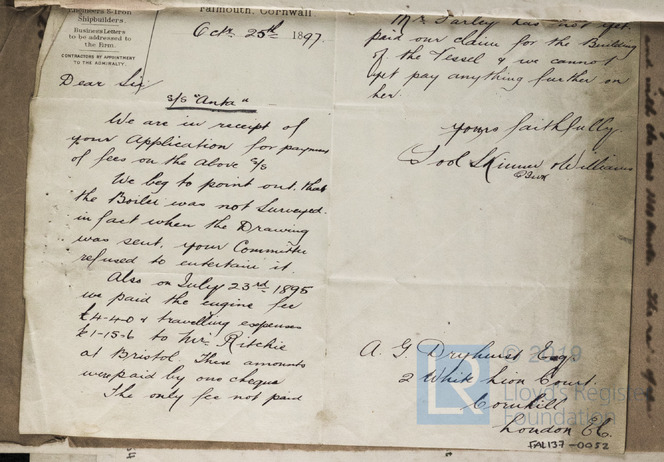 Falmouth, Cornwall
Engineers & Iron
Shipbuilders.
Business Letters
to be addressed to
the firm.
CONTRACTORS BY APPOINTMENT
TO THE ADMIRALTY.
Octr. 25th 1897.
Dear Sir
S/S "Anta"
We are in receipt of
your Application for payment
of fees on the above S/S
We beg to point out that
the Boiler was not Surveyed.
in fact when the Drawing
was sent, your Committee
refused to entertain it.
Also on July 23rd 1895
we paid the engine fee
£4-4-0 & travelling expenses
£1-15-6 to Mr. Ritchie
at Bristol. These amounts
were paid by one cheque
The only fee not paid
Mr. Farley has not yet
paid our claim for the Building
of the Vessel & we cannot
yet pay anything further on
her.
yours faithfully.
Tod Skinner & Williams
A. G. Dryhurst Esq.
2 White Lion Court.
Cornhill
London E.C.
FAL137-0052
© 2019
LR
Lloyd's Register
Foundation